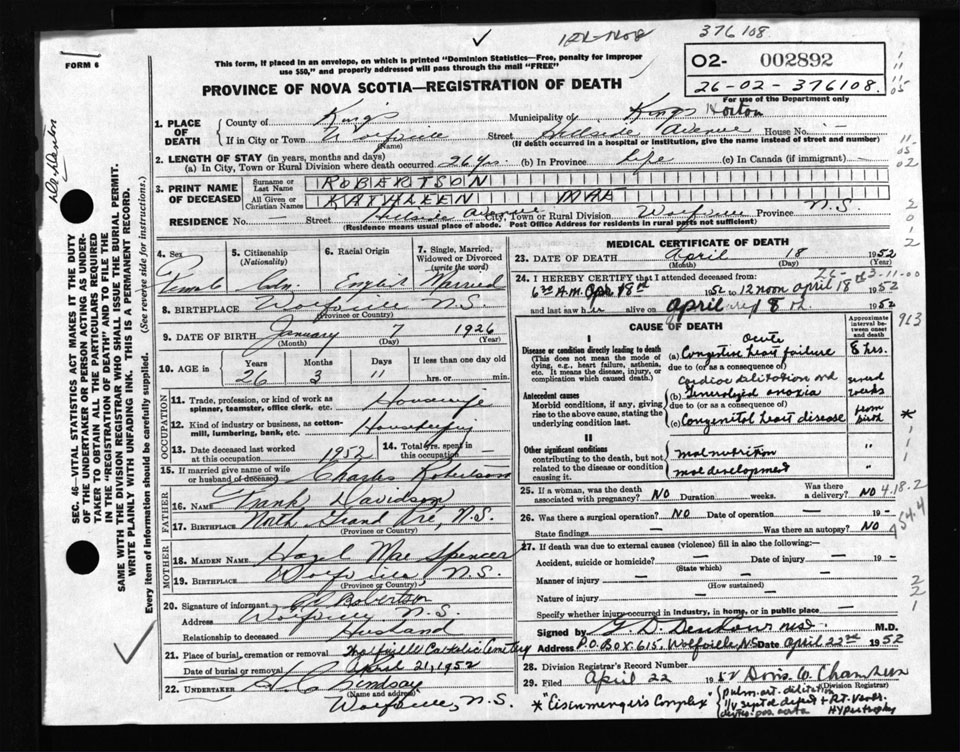 FORM 6
376108
This form, if placed in an envelope, on which is printed "Dominion Statistics—Free, penalty for improper
use $50," and properly addressed will pass through the mail "FREE"
PROVINCE OF NOVA SCOTIA—REGISTRATION OF DEATH
02- 002892
26-02-376108.
For use of the Department only
SEC. 46—VITAL STATISTICS ACT MAKES IT THE DUTY
OF THE UNDERTAKER OR PERSON ACTING AS UNDER-
TAKER TO OBTAIN ALL THE PARTICULARS REQUIRED
IN THE "REGISTRATION OF DEATH" AND TO FILE THE
SAME WITH THE DIVISION REGISTRAR WHO SHALL ISSUE THE BURIAL PERMIT.
WRITE PLAINLY WITH UNFADING INK. THIS IS A PERMANENT RECORD.
Every item of information should be carefully supplied. (See reverse side for instructions.)
1. PLACE OF DEATH
County of Kings Municipality of Kings Horton
If in City or Town Wolfville Street Hillside Avenue House No. -
(Name) (If death occurred in hospital or institution, give the name instead of street and number)
2. LENGTH OF STAY (in years, months and days)
(a) In City, Town or Rural Division where death occurred 26 yrs. (b) In Province Life (c) In Canada (if immigrant) -
3. PRINT NAME OF DECEASED
Surname or Last Name ROBERTSON
All Given or Christian Names KATHLEEN MAE
RESIDENCE No. - Street Hillside Avenue City, Town or Rural Division Wolfville Province N.S.
(Residence means usual place of abode. Post Office Address for residents in rural parts not sufficient)
4. Sex Female
5. Citizenship (Nationality) Cdn.
6. Racial Origin English
7. Single, Married, Widowed or Divorced (write the word) Married
8. BIRTHPLACE Wolfville N.S.
(Province or Country)
9. DATE OF BIRTH January 7 1926
(Month) (Day) (Year)
10. AGE in Years 26 Months 3 Days 11 If less than one day old
hrs. or min.
OCCUPATION
11. Trade, profession, or kind of work as spinner, teamster, office clerk, etc. Housewife
12. Kind of industry or business, as cotton-mill, lumbering, bank, etc. Housekeeping
13. Date deceased last worked at this occupation 1952
14. Total yrs. spent in this occupation -
15. If married give name of wife or husband of deceased Charles Robertson
FATHER
16. Name Frank Davidson
17. Birthplace North Grand Pré, N.S.
(Province or Country)
MOTHER
18. MAIDEN NAME Hazel Mae Spencer
19. BIRTHPLACE Wolfville, N.S.
(Province or Country)
20. Signature of informant Robertson
Address Wolfville N.S.
Relationship to deceased Husband
21. Place of burial, cremation or removal Wolfville Catholic Cemetery
Date of burial or removal April 21, 1952
22. UNDERTAKER H C Lindsay
(Name and address)
Wolfville, N.S.
MEDICAL CERTIFICATE OF DEATH
23. DATE OF DEATH April 18 1952
(Month) (Day) (Year)
24. I HEREBY CERTIFY that I attended deceased from:
6 A.M. Apr 18th 1952 to 12 noon april 18th 1952
and last saw her alive on april 18th 1952
CAUSE OF DEATH
Approximate interval between onset and death
I
Disease or condition directly leading to death
(This does not mean the mode of dying, e.g., heart failure, asthenia, etc. It means the disease, injury, or complication which caused death.)
(a) Acute Congestive heart failure 8 hrs.
due to (or as a consequence of)
Antecedent causes
Morbid conditions, if any, giving rise to the above cause, stating the underlying condition last.
Cardiac dilitation and
(b) Generalized anoxia several weeks
due to (or as a consequence of)
(c) Congenital heart disease from birth *
II
Other significant conditions
contributing to the death, but not related to the disease or condition causing it.
malnutrition "
maldevelopment "
25. If a woman, was the death associated with pregnancy? NO Duration weeks. Was there a delivery? NO
4.18.2
26. Was there a surgical operation? NO Date of operation - 19-
State findings Was there an autopsy? NO
754.4
27. If death was due to external causes (violence) fill in also the following:—
Accident, suicide or homicide? - Date of injury - 19-
(State which)
Manner of injury -
(How sustained)
Nature of injury -
Specify whether injury occurred in industry, in home, or in public place -
Signed by M.D.
Address P.O. BOX 615. Wolfville, NS Date april 22nd 1952
28. Division Registrar's Record Number
29. Filed April 22 1952 Doris W.
(Division Registrar)
* "Eisenmenger's Complex"
pulm. art. dilitation